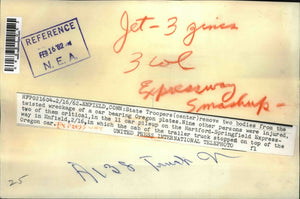 REFERENCE
FEB 16 '62
N. E. A.
Jet - 3
3 col
Expressway
Smashup -
HFP021604-2/16/62-ENFIELD, CONN: State Troopers(center)remove two bodies from the
twisted wreckage of a car bearing Oregon plates. Nine other persons were injured,
two of them critical, in the 11 car pileup on the Hartford-Springfield Express-
way in Enfield, 2/16, in which the cab of the trailer truck stopped on top of the
Oregon car.
UNITED PRESS INTERNATIONAL TELEPHOTO
fl
25